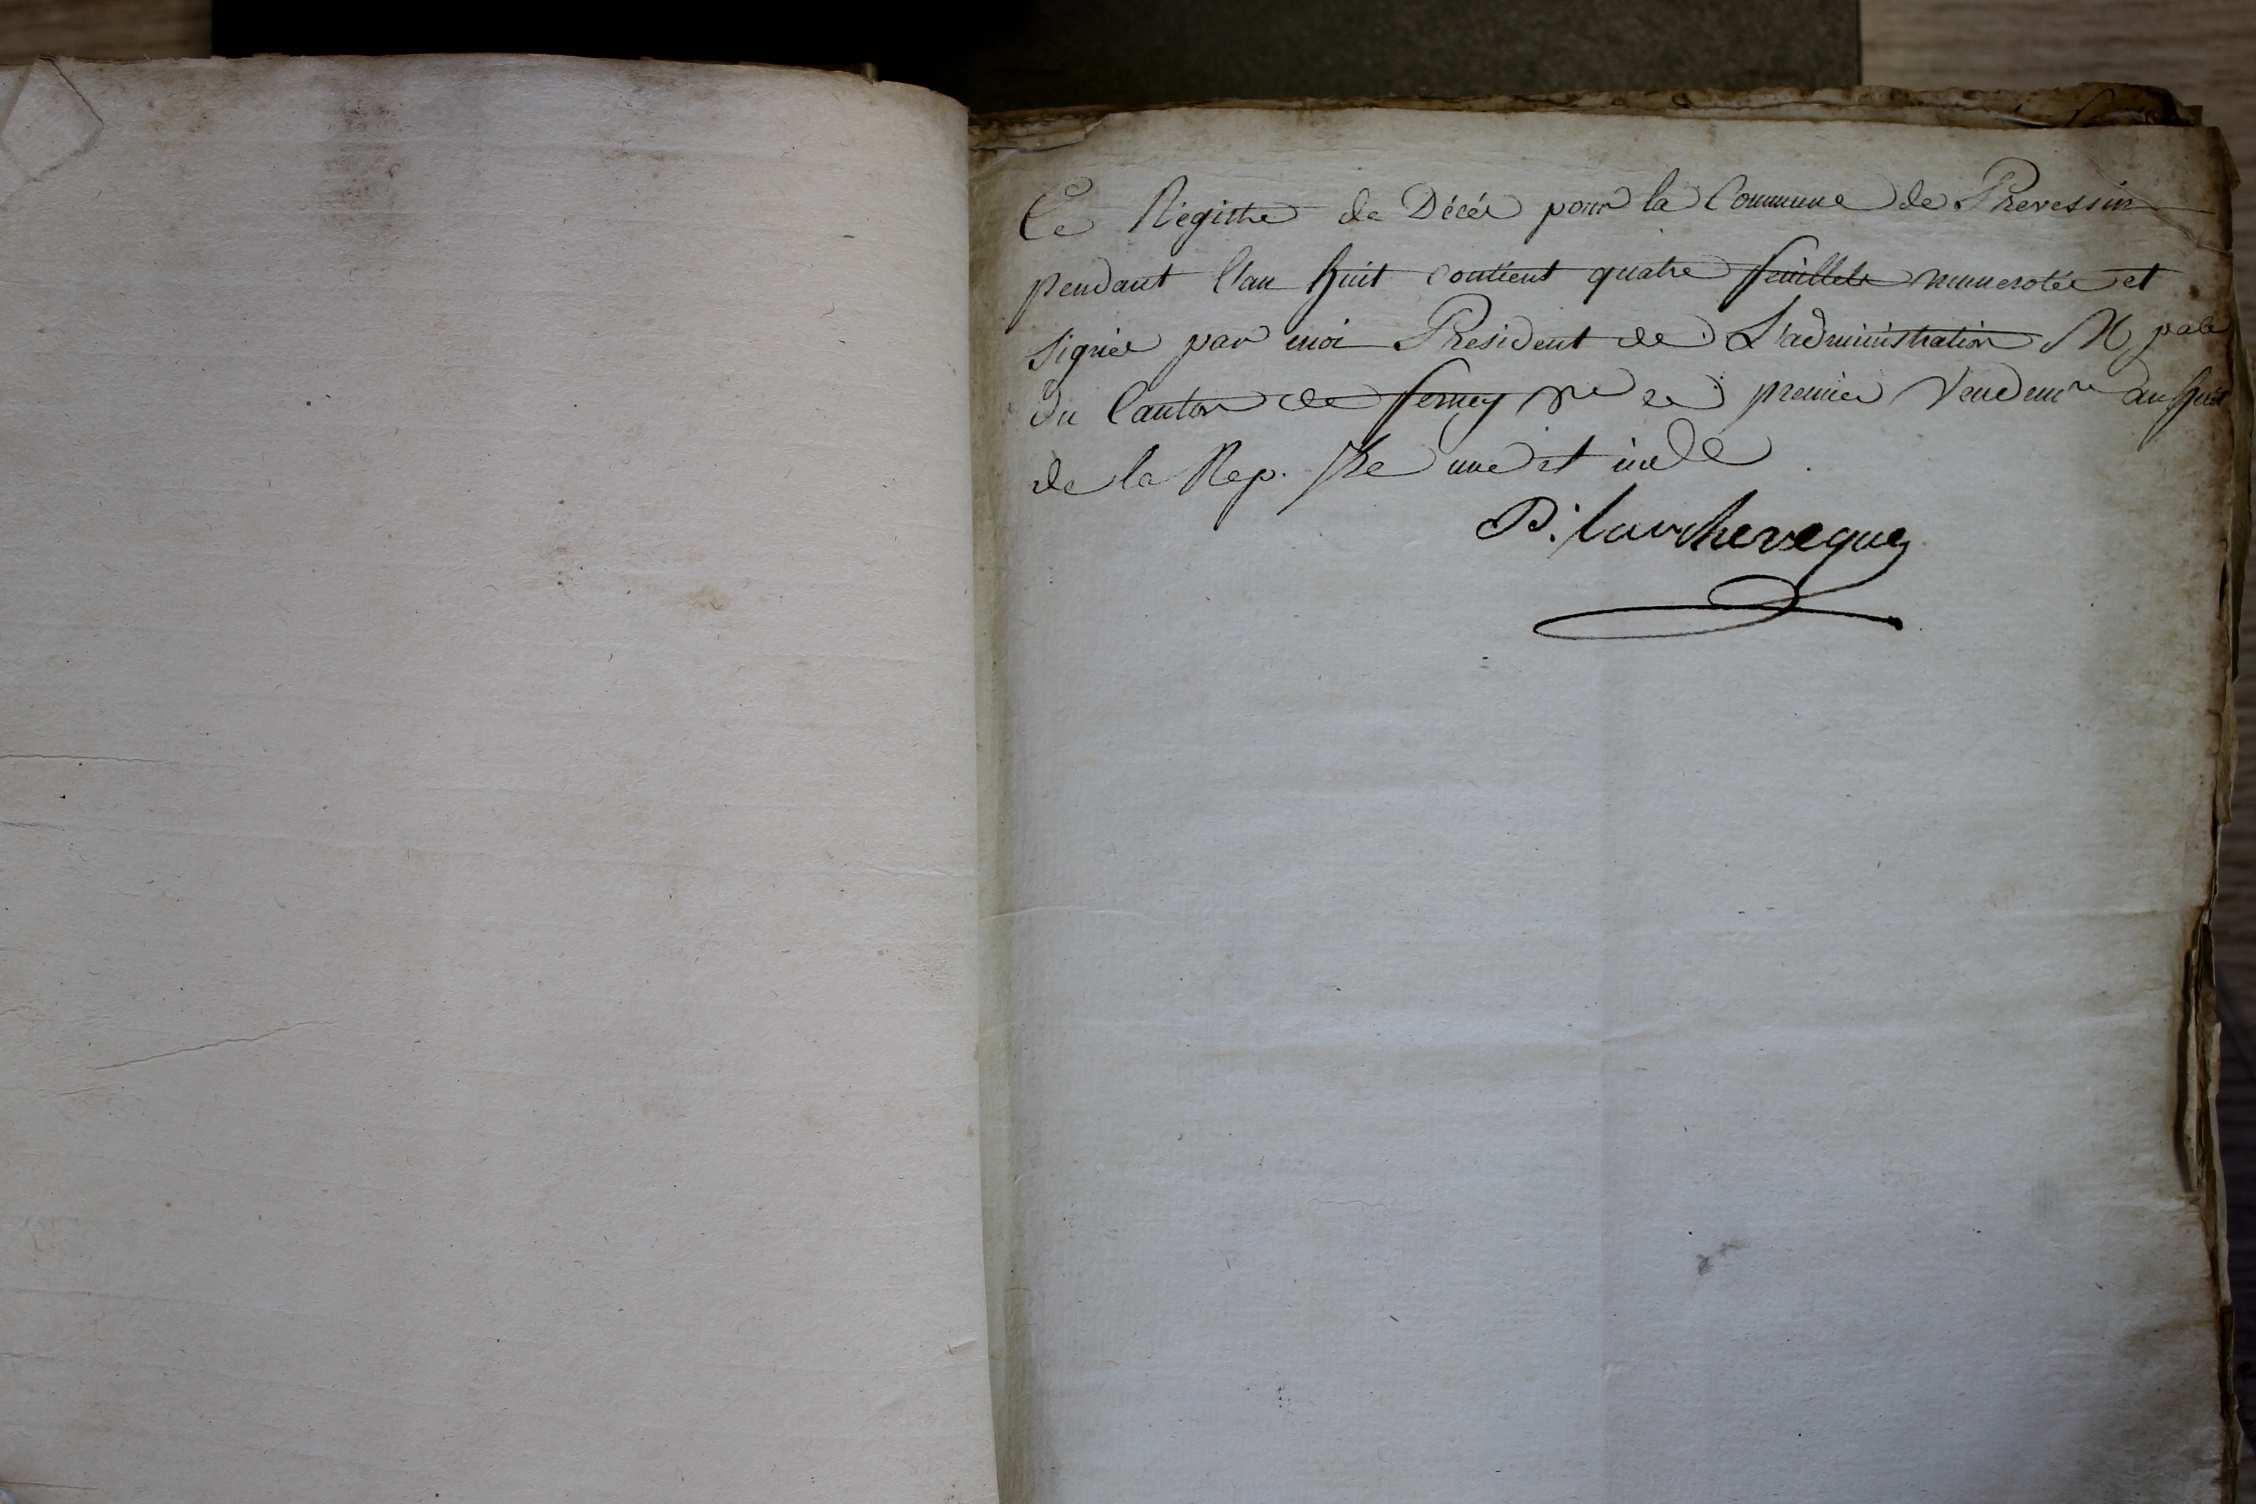 Ce Régistre de Décés pour la Commune de Prevessin
pendant l'an huit contient quatre feuillets numerotés et
signés par moi President de L'administration M pale
du Canton de ferney ce premier Vendemre an huit
de la Rep. fse une et inde
P. Larcheveque